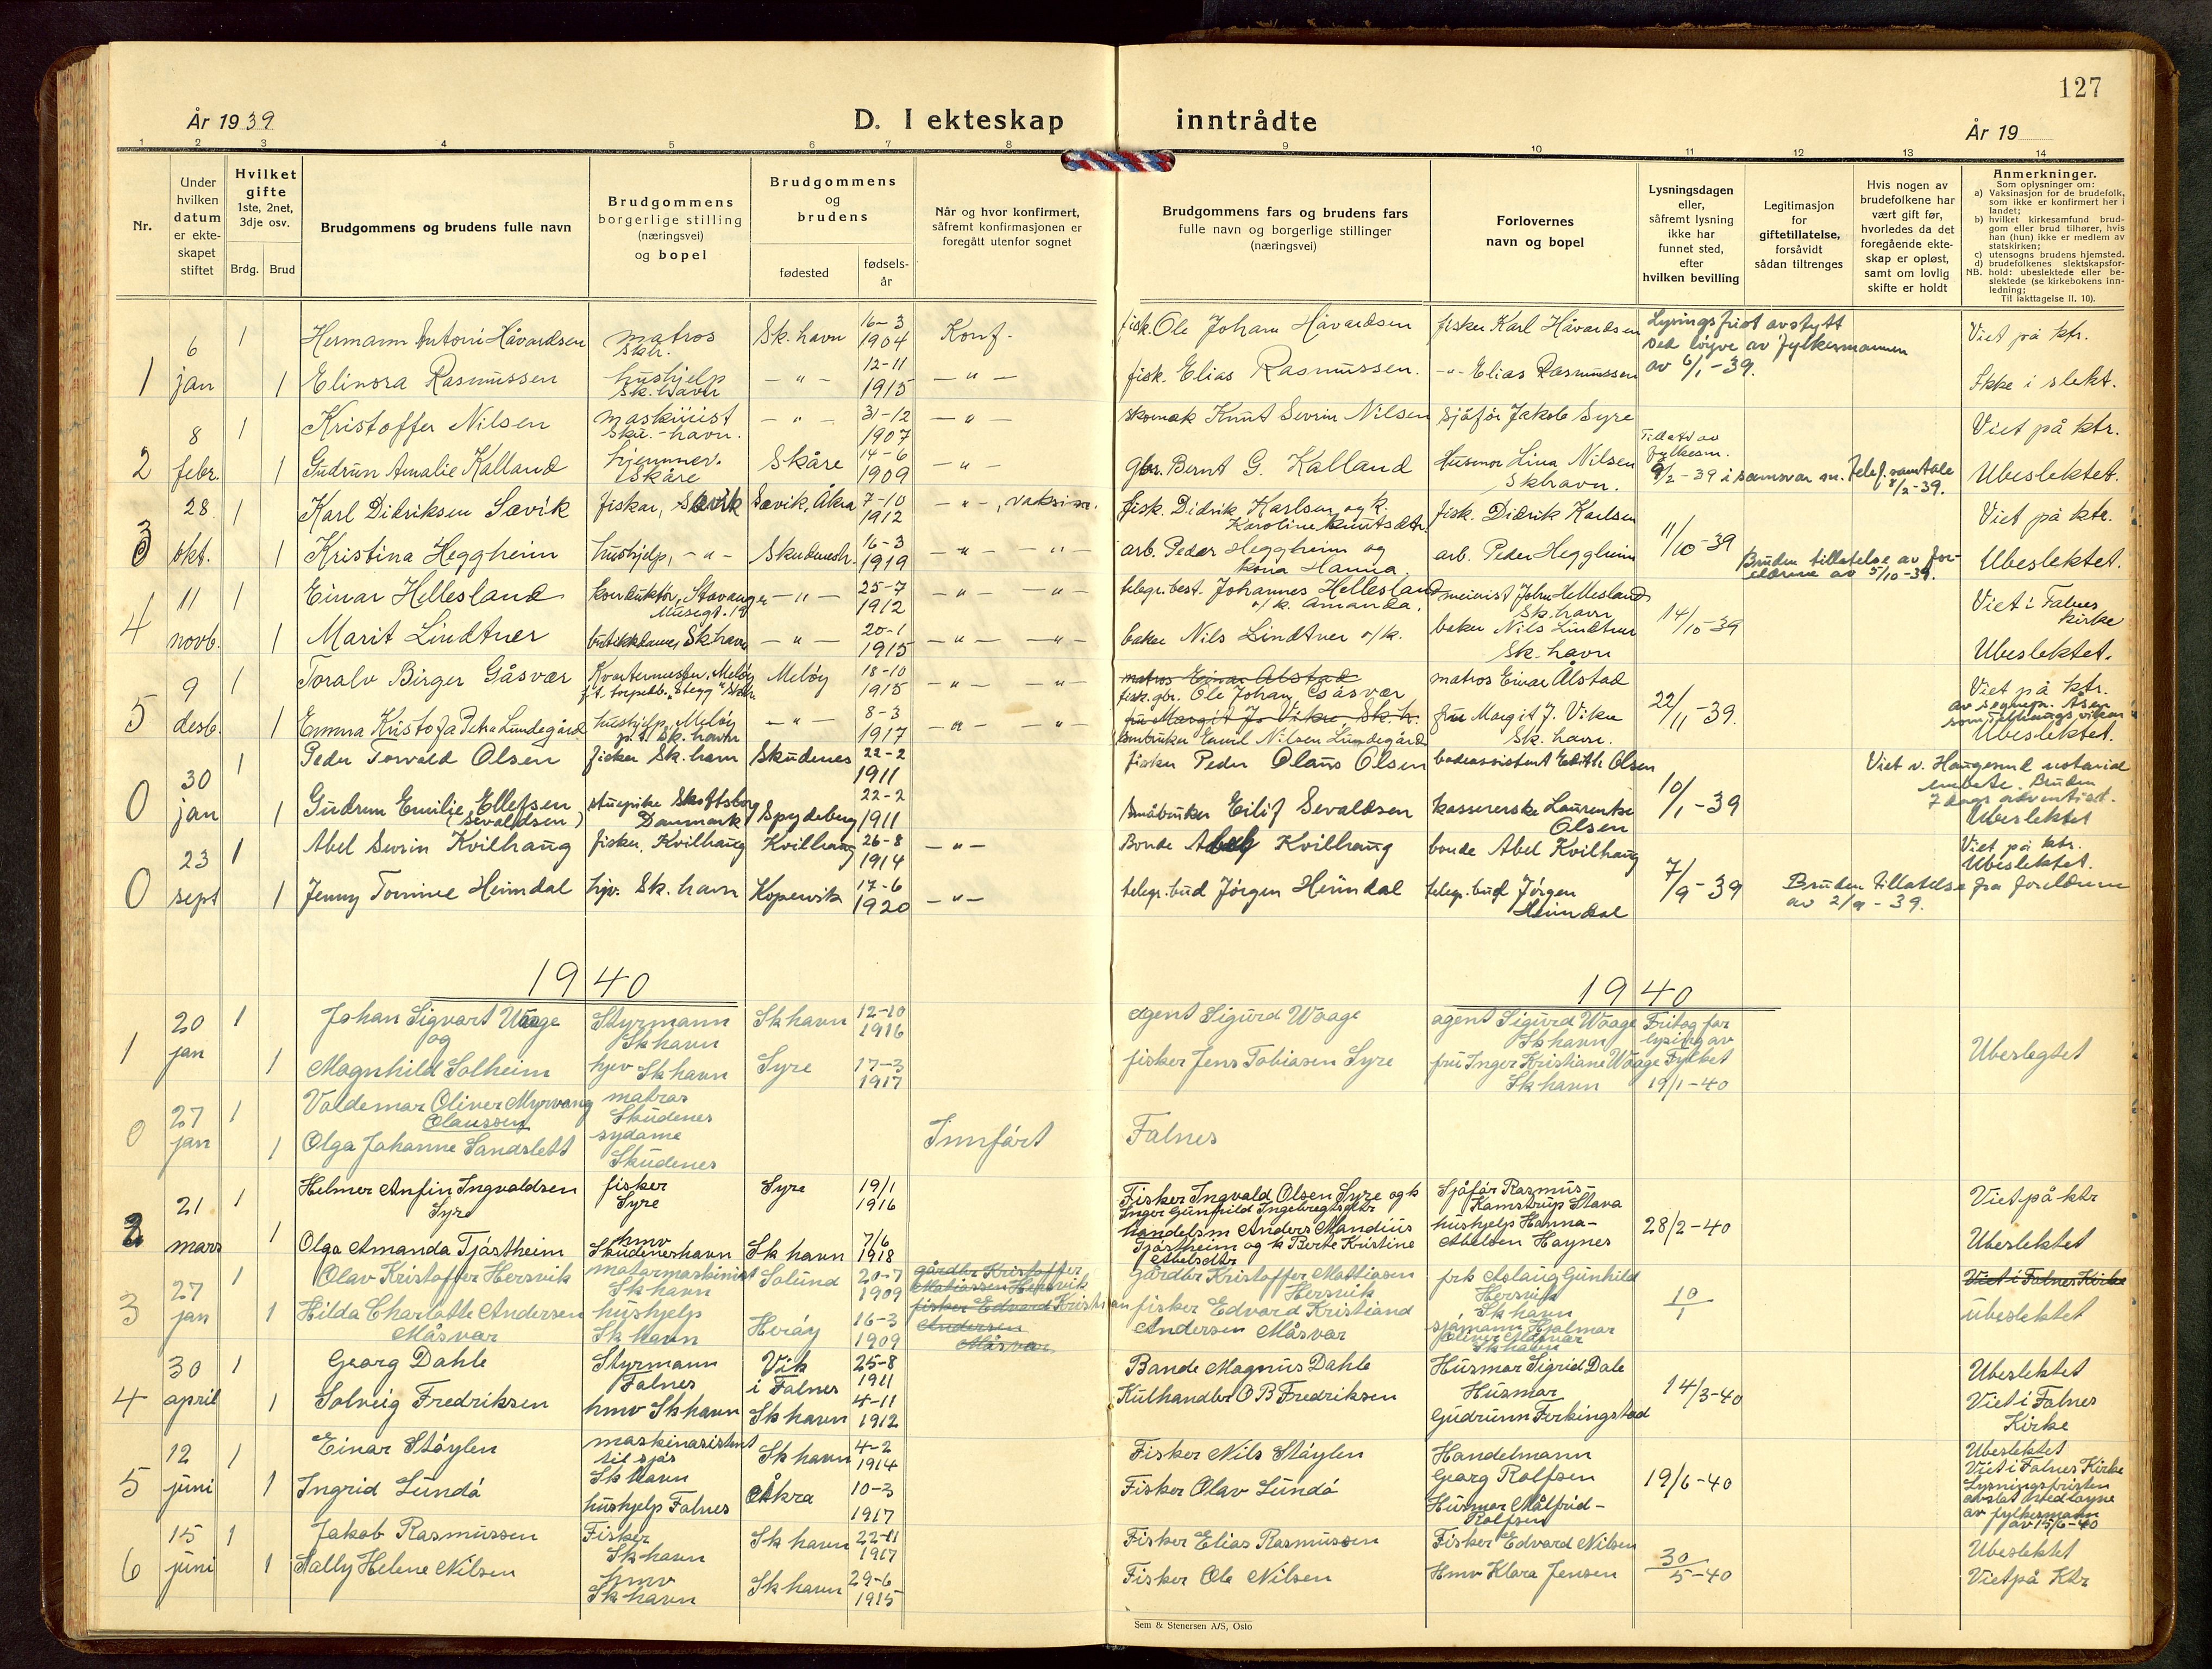 127
År 1939
D. I ekteskap inntrådte
År 19
1 2 3 4 5 6 7 8 9 10 11 12 13 14
Nr.
Under hvilken datum er ekteskapet stiftet
Hvilket gifte 1ste, 2net, 3dje osv.
Brdg. Brud
Brudgommens og brudens fulle navn
Brudgommens borgerlige stilling (næringsvei) og bopel
Brudgommens og brudens
fødested
fødselsår
Når og hvor konfirmert, såfremt konfirmasjonen er foregått utenfor sognet
Brudgommens fars og brudens fars fulle navn og borgerlige stillinger (næringsvei)
Forlovernes navn og bopel
Lysningsdagen eller, såfremt lysning ikke har funnet sted, efter hvilken bevilling
Legitimasjon for giftetillatelse, forsåvidt sådan tiltrenges
Hvis nogen av brudefolkene har vært gift før, hvorledes da det foregående ekteskap er opløst, samt om lovlig skifte er holdt
Anmerkninger.
Som oplysninger om:
a) Vaksinasjon for de brudefolk, som ikke er konfirmert her i landet;
b) hvilket kirkesamfund brudgom eller brud tilhører, hvis han (hun) ikke er medlem av statskirken;
c) utensogns brudens hjemsted.
d) brudefolkenes slektskapsforhold: ubeslektede eller beslektede (se kirkebokens innledning;
NB.
Til iakttagelse II. 10).
1 6 jan 1 Hermann Antoni Håvardsen matros Skh. Sk. havn 16-3 1904 Konf. fisk. Ole Johan Håvardsen fisker Karl Håvardsen Lysingsfrist avstytt ved løyve av fylkesmannen av 6/1-39. Viet på ktr.
1 Elinora Rasmussen hushjelp Sk. havn -"- 12-11 1915 -"- fisk. Elias Rasmussen. -"- Elias Rasmussen Ikke i slekt.
2 8 febr. 1 Kristoffer Nilsen maskinist Sku.-havn. -"- 31-12 1907 -"- skomak Knut Sevrin Nilsen sjåfør Jakob Syre Viet på ktr.
1 Gudrun Amalie Kalland hjemmev. Skåre Skåre 14-6 1909 -"- gbr. Bernt G. Kalland Husmor Lina Nilsen Skhavn. Tillatt av fylkesm. 9/2-39 i samsvar m. telef. samtale 8/2-39. Ubeslektet.
3 28 okt. 1 Karl Didriksen Sævik fisker, Sævik Sævik, Åkra 7-10 1912 -"-, vaksin. fisk. Didrik Karlsen og k. Karoline Knutsdtr. fisk. Didrik Karlsen 11/10-39 Viet på ktr.
1 Kristina Heggheim hushjelp, -"- Skudenesh. 16-3 1919 -"- -"- arb. Peder Heggheim og kona Hanna. arb. Peder Heggheim Bruden tillatelse av foreldrene av 5/10-39. Ubeslektet.
4 11 novb. 1 Einar Hellesland konduktør, Stavanger Musegt. 19 -"- 25-7 1912 -"- -"- telegr. best. Johannes Hellesland o/k. Amanda. meierist John Hellesland Sk. havn 14/10-39 Viet i Falnes kirke
1 Marit Lindtner butikkdame, Sk havn -"- 20-1 1915 -"- -"- baker Nils Lindtner o/k. baker Nils Lindtner Sk. havn Ubeslektet.
5 9 desb. 1 Toralv Birger Gåsvær Kvartermester, Meløy p.t. torpedb. "Stegg" Skhn. Meløy 18-10 1915 -"- -"- matros Einar Alstad fisk. gbr. Ole Johan Gåsvær matros Einar Alstad 22/11-39. Viet på ktr.
1 Emma Kristofa Petra Lundegård hushjelp, Meløy p.t. Sk. havn -"- 8-3 1917 -"- -"- fru Margit J. Vikre, Sk. h. småbruker Emil Nilsen Lundegård fru Margit J. Vikre Sk. havn. Ubeslektet.
0 30 jan 1 Peder Torvald Olsen fisker Sk. havn Skudenes 22-2 1911 fisker Peder Olaus Olsen badeassistent Edith Olsen 10/1-39 Viet v. Haugesund notarialembete. Bruden 7 dags adventist.
1 Gudrun Emilie Ellefsen (Sevaldsen) stuepike Skottsborg Danmark Spydeberg 22-2 1911 Småbruker Eilif Sevaldsen kassererske Laurentse Olsen Ubeslektet
0 23 sept 1 Abel Sevrin Kvilhaug fisker, Kvilhaug Kvilhaug 26-8 1914 -"- Bonde Abel Kvilhaug bonde Abel Kvilhaug 7/9-39 Viet på ktr. Ubeslektet.
1 Jenny Tomine Heimdal hjv. Sk. havn Kopervik 17-6 1920 -"- telegr. bud Jørgen Heimdal telegr. bud Jørgen Heimdal Bruden tillatelse fra foreldrene av 2/9-39.
1940 1940
1 20 jan 1 Johan Sigvart Waage og Styrmann Skhavn Skhavn 12-10 1916 agent Sigurd Waage agent Sigurd Waage Skhavn Fritag for lysing av Fylket 19/1-40
1 Magnhild Solheim hjv Skhavn Syre 17-3 1917 fisker Jens Tobiasen Syre fru Inger Kristiane Waage Skhavn Ubeslegtet
0 27 jan 1 Valdemar Oliver Myrvang Olaussen matros Skudenes
1 Olga Johanne Sandslett sydame Skudenes Innført Falnes
2 21 mars 1 Helmer Anfin Ingvaldsen Syre fisker Syre Syre 19/1 1916 Fisker Ingvald Olsen Syre og k Inger Gunhild Ingebregtsdtr Sjåfør Rasmus Kamstrup Stava 28/2-40 Viet på ktr
1 Olga Amanda Tjøstheim hmv Skudeneshavn Sk havn 7/6 1918 handelsm Anders Mandius Tjøstheim og k Berte Kristine Abelsdtr hushjelp Hanna Abelsen Haynes Ubeslektet
3 27 jan 1 Olav Kristoffer Hersvik motormaskinist Sk havn Solund 20-7 1909 gårdbr Kristoffer Matiassen Hersvik gårdbr Kristoffer Mathiasen Hersvik frk Aslaug Gunhild Hersvik Sk havn 10/1 Viet i Falnes Kirke
1 Hilda Charlotte Andersen Måsvær hushjelp Sk havn Herøy 16-3 1909 fisker Edvard Kristian Andersen Måsvær fisker Edvard Kristiand Andersen Måsvær sjømann Hjalmar Oliver Måsvær Sk havn ubeslektet
4 30 april 1 Georg Dahle Styrmann Falnes Vik i Falnes 25-8 1911 Bonde Magnus Dahle Husmor Sigrid Dale 14/3-40 Ubeslektet
1 Solveig Fredriksen hmv Sk havn Sk havn 4-11 1912 Kulhandler O B Fredriksen Husmor Gudrunn Ferkingstad Viet i Falnes Kirke
5 12 juni 1 Einar Støylen maskinasistent til sjøs Sk havn Sk havn 4-2 1914 Fisker Nils Støylen Handelmann Georg Rolfsen 19/6-40 Ubeslektet Viet i Falnes Kirke
1 Ingrid Lundø hushjelp Falnes Åkra 10-3 1917 Fisker Olav Lundø Husmor Målfrid Rolfsen Lysningsfristen avslat ved løyve av fylkesmann av 15/6-40
6 15 juni 1 Jakob Rasmussen Fisker Sk havn Sk havn 22-11 1917 Fisker Elias Rasmussen Fisker Edvard Nilsen 30/5-40 Ubeslektet
1 Sally Helene Nilsen hmv Sk havn Sk havn 29-6 1915 Fisker Ole Nilsen Hmv Klara Jensen Viet på Ktr
Sem & Stenersen A/S, Oslo